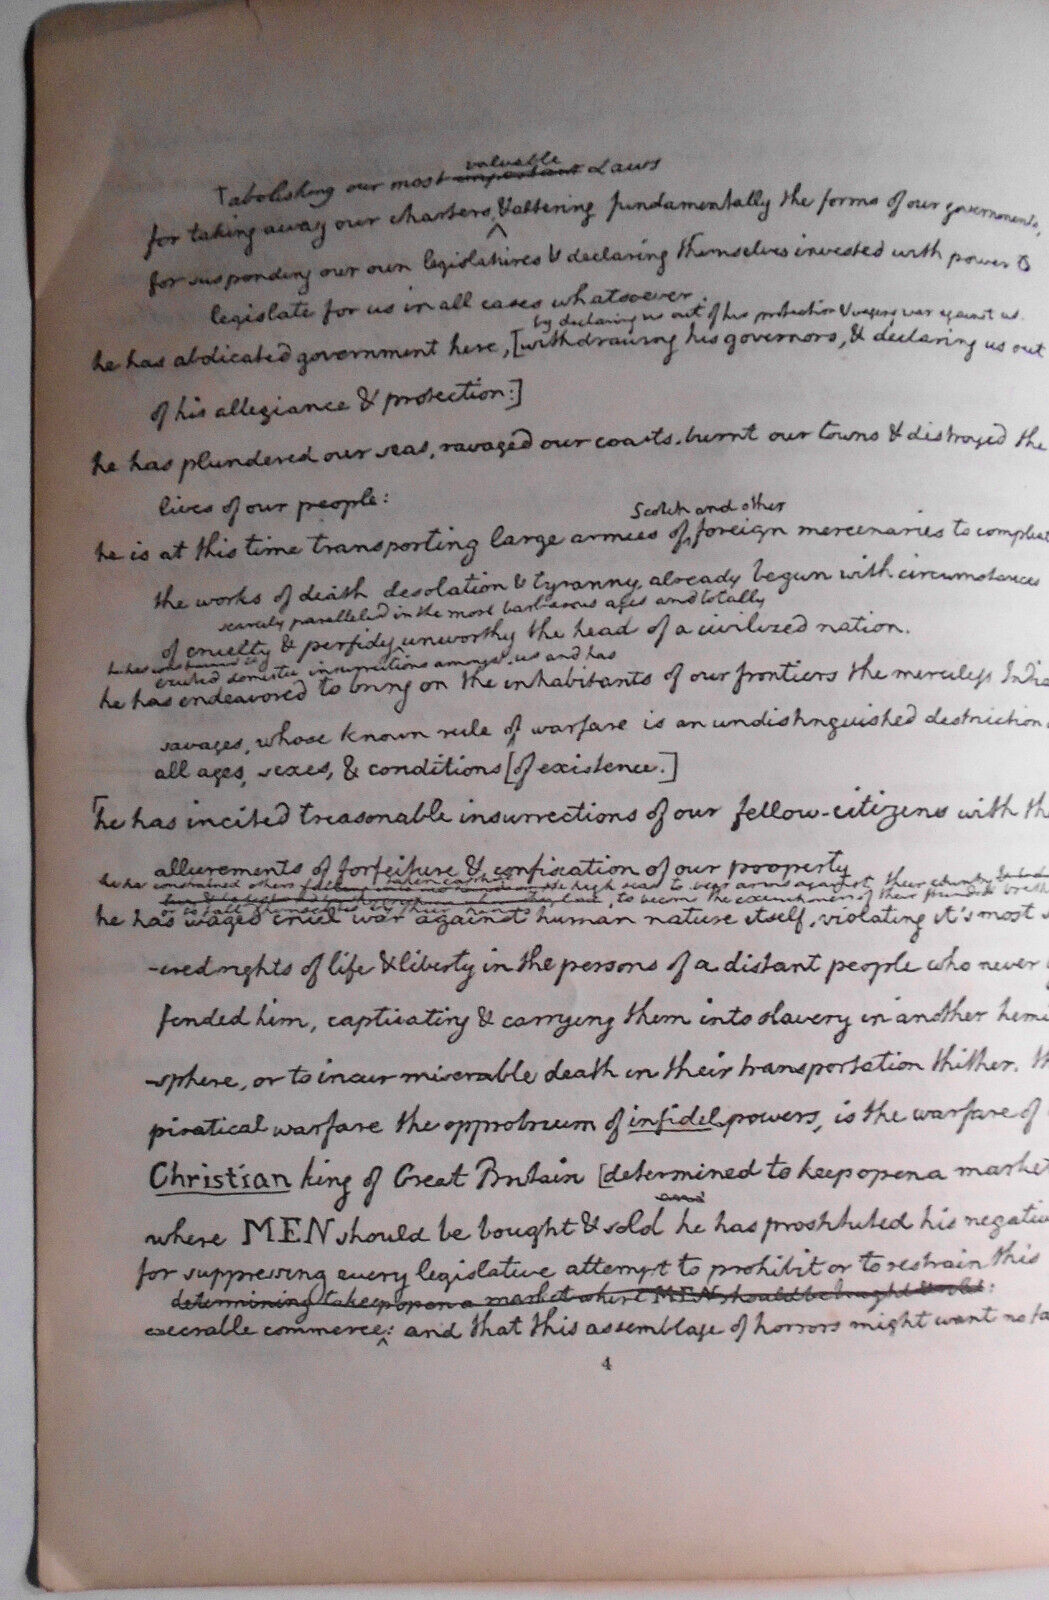 valuable
†abolishing our most important Laws
for taking away our charters, & altering fundamentally the forms of our governments,
^
for suspending our own legislatures & declaring themselves invested with power to
legislate for us in all cases whatsoever.
by declaring us out of his protection & waging war against us.
he has abdicated government here, [withdrawing his governors, & declaring us out
of his allegiance & protection:]
he has plundered our seas, ravaged our coasts, burnt our towns & distroyed the
lives of our people:
Scotch and other
he is at this time transporting large armies of ^ foreign mercenaries to compleat
the works of death desolation & tyranny already begun with circumstances
scarcely paralleled in the most barbarous ages and totally
of cruelty & perfidy ^ unworthy the head of a civilized nation.
excited domestic insurrections amongst us and has
he has endeavored to bring on the inhabitants of our frontiers the merciless India
savages, whose known rule of warfare is an undistinguished destruction
all ages, sexes, & conditions [of existence.]
[he has incited treasonable insurrections of our fellow-citizens with th
allurements of forfeiture & confiscation of our property
he has constrained others taken captive on the high seas to bear arms against their country
to become the executioners of their friends & breth
or to fall themselves by their hands
he has waged cruel war against human nature itself, violating it's most s
-cred rights of life & liberty in the persons of a distant people who never
fended him, captivating & carrying them into slavery in another hemi
-sphere, or to incur miserable death in their transportation thither. th
piratical warfare the opprobrium of infidel powers, is the warfare of
Christian king of Great Britain [determined to keep open a market
and
where MEN should be bought & sold he has prostituted his negativ
for suppressing every legislative attempt to prohibit or to restrain this
determining to keep open a market where MEN should be bought & sold:
execrable commerce: ^ and that this assemblage of horrors might want no fa
4